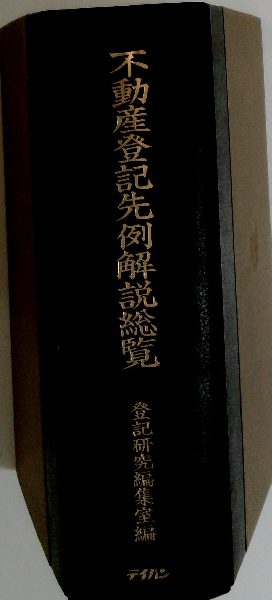 不動産登記先例解説総覧
登記研究編集室編
テイハン